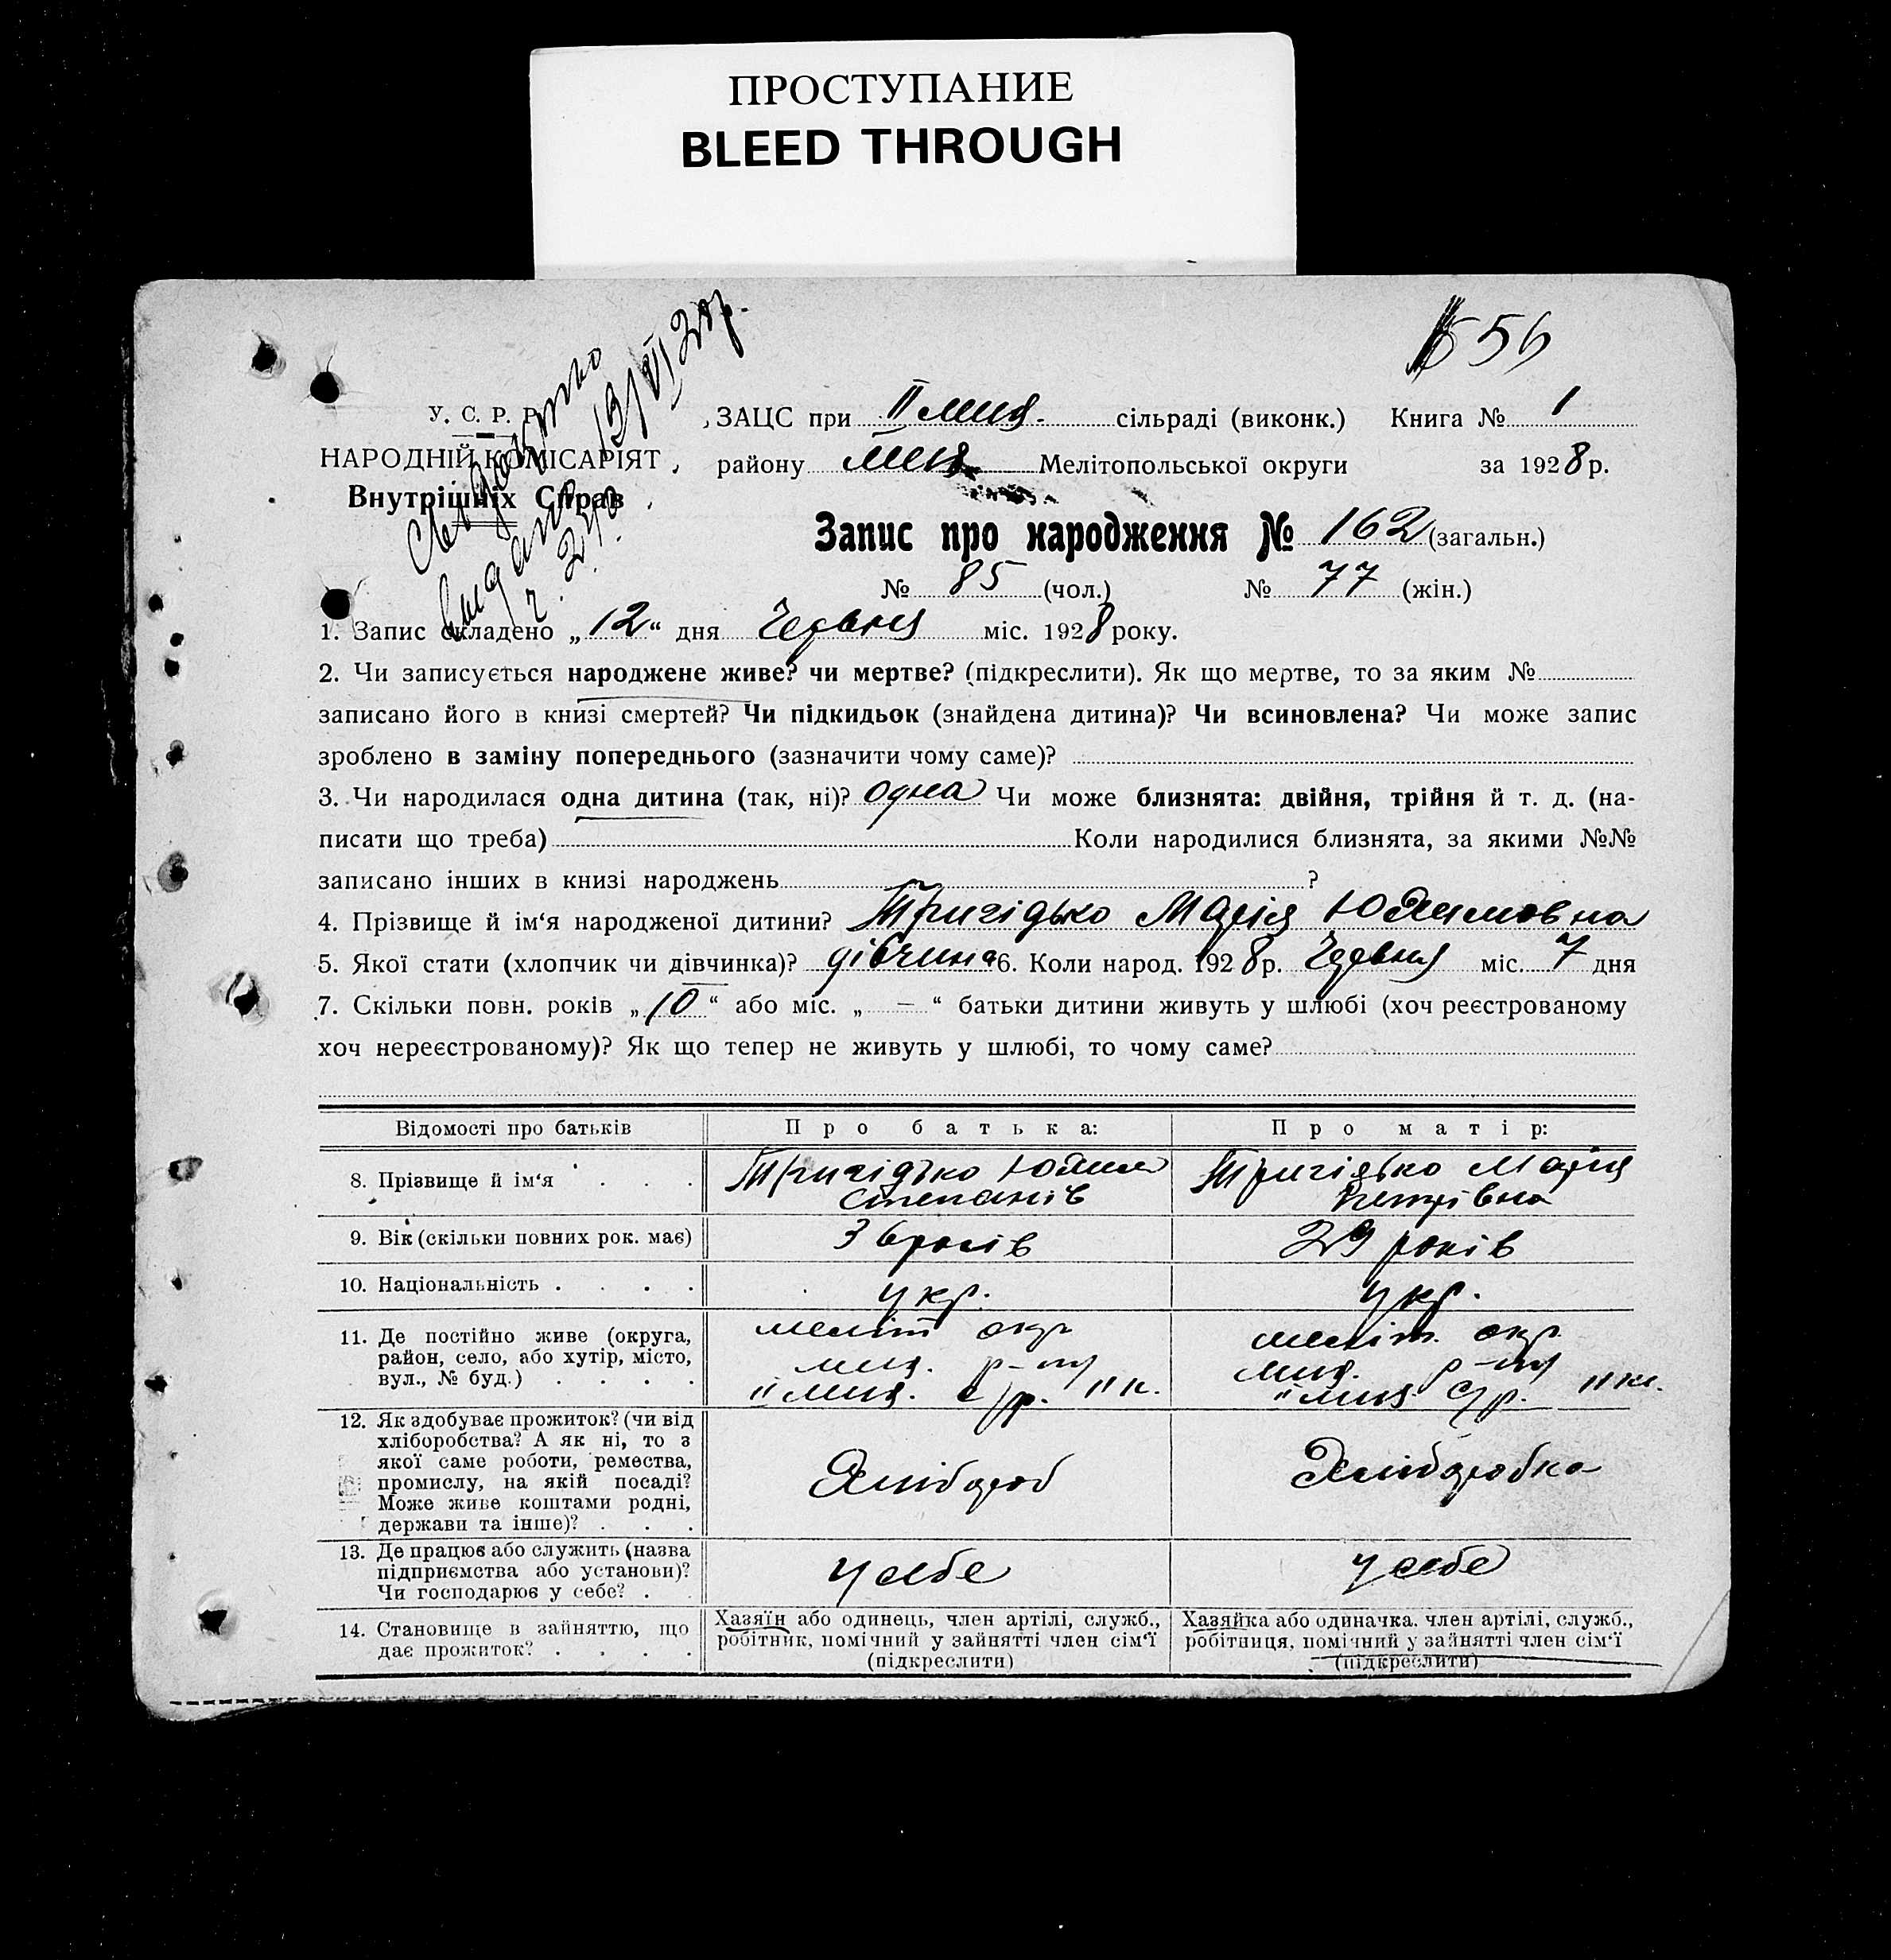 ПРОСТУПАНИЕ
BLEED THROUGH
56
У. С. Р. Р.
НАРОДНІЙ КОМІСАРІЯТ
Внутрішніх Справ
Свідоцтво
видано 13/VI 28р.
ЗАЦС при II миц. сільраді (виконк.) Книга № 1
району миц Мелітопольської округи за 1928 р.
Запис про народження № 162 (загальн.)
№ 85 (чол.) № 77 (жін.)
1. Запис складено „12“ дня Червня міс. 1928 року.
2. Чи записується народжене живе? чи мертве? (підкреслити). Як що мертве, то за яким №
записано його в книзі смертей? Чи підкидьок (знайдена дитина)? Чи всиновлена? Чи може запис
зроблено в заміну попереднього (зазначити чому саме)?
3. Чи народилася одна дитина (так, ні)? одна Чи може близнята: двійня, трійня й т. д. (на-
писати що треба) Коли народилися близнята, за якими №№
записано інших в книзі народжень ?
4. Прізвище й ім‘я народженої дитини? Тригідько Марія Юхимовна
5. Якої стати (хлопчик чи дівчинка)? дівчина 6. Коли народ. 1928 р. Червня міс. 7 дня
7. Скільки повн. років „10“ або міс. „ — “ батьки дитини живуть у шлюбі (хоч реєстрованому
хоч нереєстрованому)? Як що тепер не живуть у шлюбі, то чому саме?
Відомості про батьків Про батька: Про матір:
8. Прізвище й ім‘я . . . Тригідько Юхим Степанів Тригідько Марія Петрівна
9. Вік (скільки повних рок. має) 36 років 29 років
10. Національність . . . . укр. укр.
11. Де постійно живе (округа,
район, село, або хутір, місто,
вул., № буд.) . . . .
меліт окр
миц. р-ну
II миц. с/р.
меліт. окр.
миц. р-ну
II миц с/р.
12. Як здобуває прожиток? (чи від
хліборобства? А як ні, то з
якої саме роботи, ремества,
промислу, на якій посаді?
Може живе коштами родні,
держави та інше)? . . .
Хлібороб Хліборобка
13. Де працює або служить (назва
підприємства або установи)?
Чи господарює у себе? .
у себе у себе
14. Становище в зайняттю, що
дає прожиток? . . . .
Хазяїн або одинець, член артілі, служб.,
робітник, помічний у зайнятті член сім‘ї
(підкреслити)
Хазяйка або одиначка. член артілі, служб.,
робітниця, помічний у зайнятті член сім‘ї
(підкреслити)